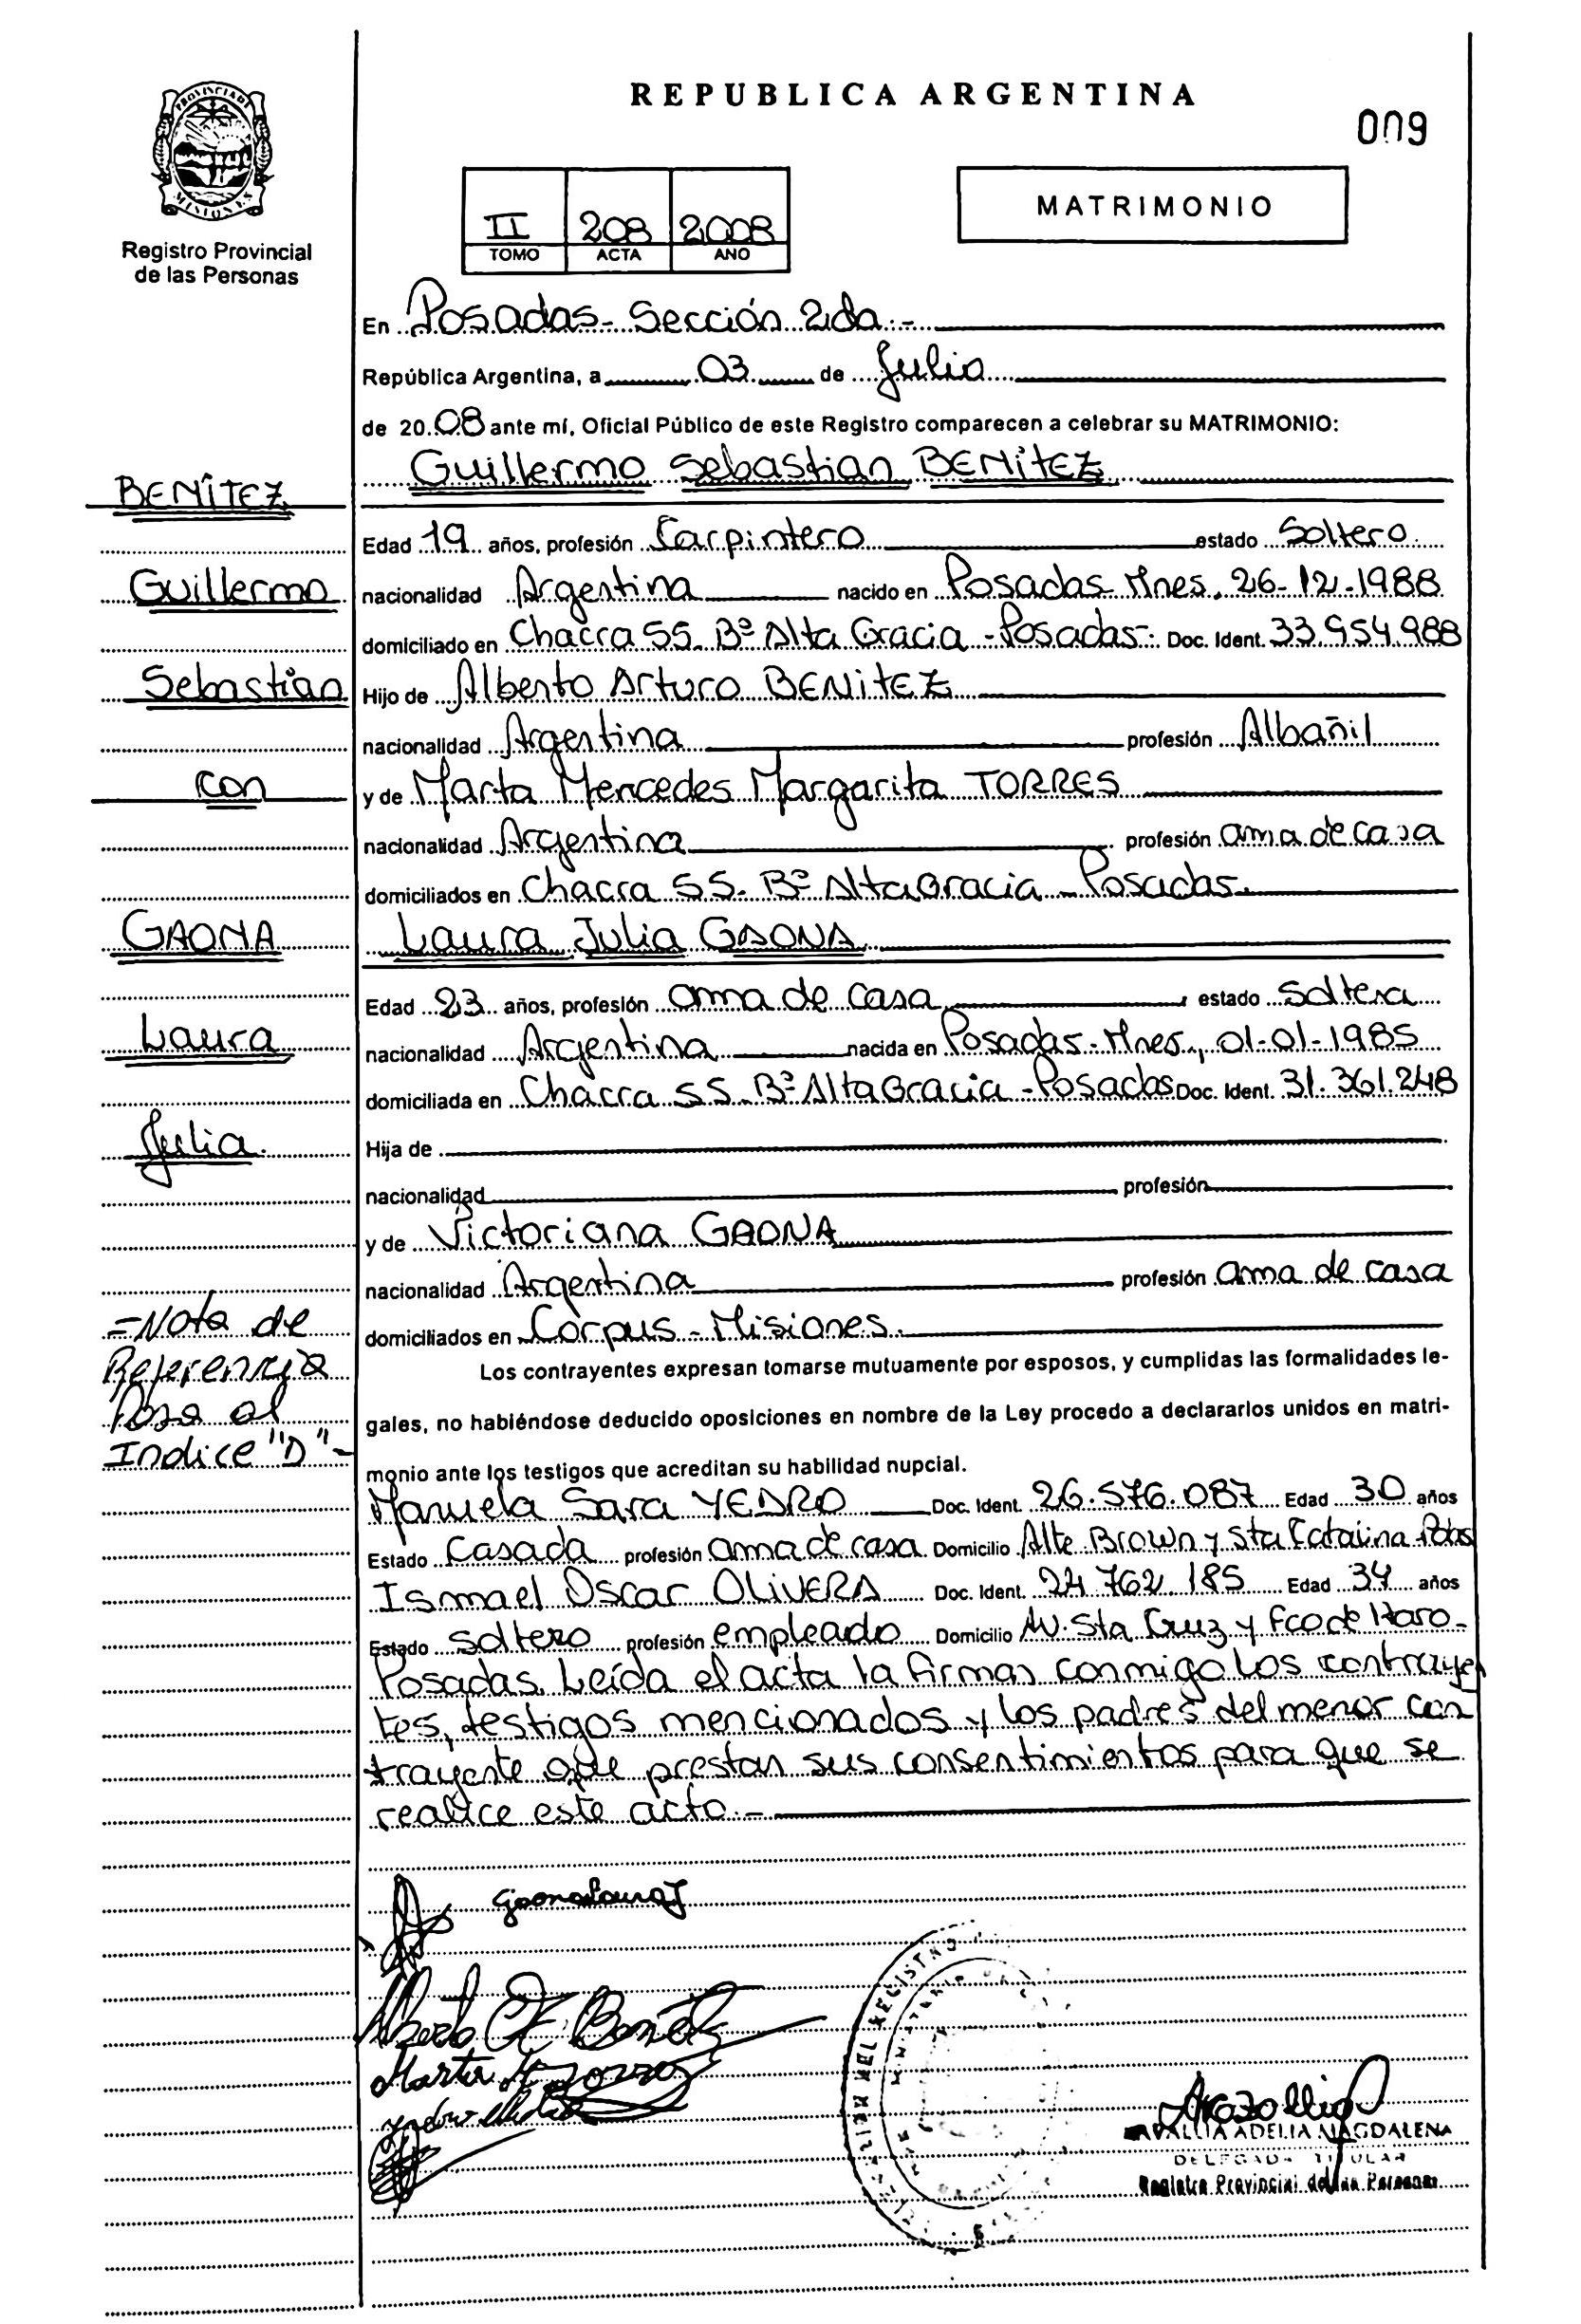 REPUBLICA ARGENTINA
009
PROVINCIA DE
MISIONES
Registro Provincial
de las Personas
II 208 2008
TOMO ACTA AÑO
MATRIMONIO
En Posadas- Sección 2da.-
República Argentina, a 03 de Julio
de 2008 ante mí, Oficial Público de este Registro comparecen a celebrar su MATRIMONIO:
Guillermo Sebastian BENITEZ
BENÍTEZ
Guillermo
Sebastian
con
GAONA
Laura
Julia.
Edad 19 años, profesión Carpintero estado Soltero
nacionalidad Argentina nacido en Posadas Mnes, 26-12-1988
domiciliado en Chacra 55. Bº Alta Gracia - Posadas-. Doc. Ident. 33.954.988
Hijo de Alberto Arturo BENITEZ
nacionalidad Argentina profesión Albañil
y de Marta Mercedes Margarita TORRES
nacionalidad Argentina profesión ama de casa
domiciliados en Chacra 55. Bº Alta Gracia - Posadas.
Laura Julia GAONA
Edad 23 años, profesión ama de casa estado Soltera
nacionalidad Argentina nacida en Posadas- Mnes, 01-01-1985
domiciliada en Chacra 55. Bº Alta Gracia - Posadas Doc. Ident. 31.361.248
Hija de
nacionalidad profesión
y de Victoriana GAONA
nacionalidad Argentina profesión ama de casa
domiciliados en Corpus - Misiones.
=Nota de
Referencia
Pasa al
Indice "D"-
Los contrayentes expresan tomarse mutuamente por esposos, y cumplidas las formalidades le-
gales, no habiéndose deducido oposiciones en nombre de la Ley procedo a declararlos unidos en matri-
monio ante los testigos que acreditan su habilidad nupcial.
Manuela Sara YEDRO Doc. Ident. 26.576.087 Edad 30 años
Estado Casada profesión ama de casa Domicilio Alte Brown y Sta Catalina -Pdas
Ismael Oscar OLIVERA Doc. Ident. 24.762.185 Edad 34 años
Estado soltero profesión empleado Domicilio Av. Sta Cruz y Fco de Haro-
Posadas. Leída el acta la firman conmigo los contrayen
tes, testigos mencionados y los padres del menor con
trayente que prestan sus consentimientos para que se
realice este acto.-
Gaona Laura J
Alberto A Benitez
Marta M Torres
DEL REGISTRO
ADELIA MAGDALENA
DELEGADA TITULAR
Registro Provincial de las Personas